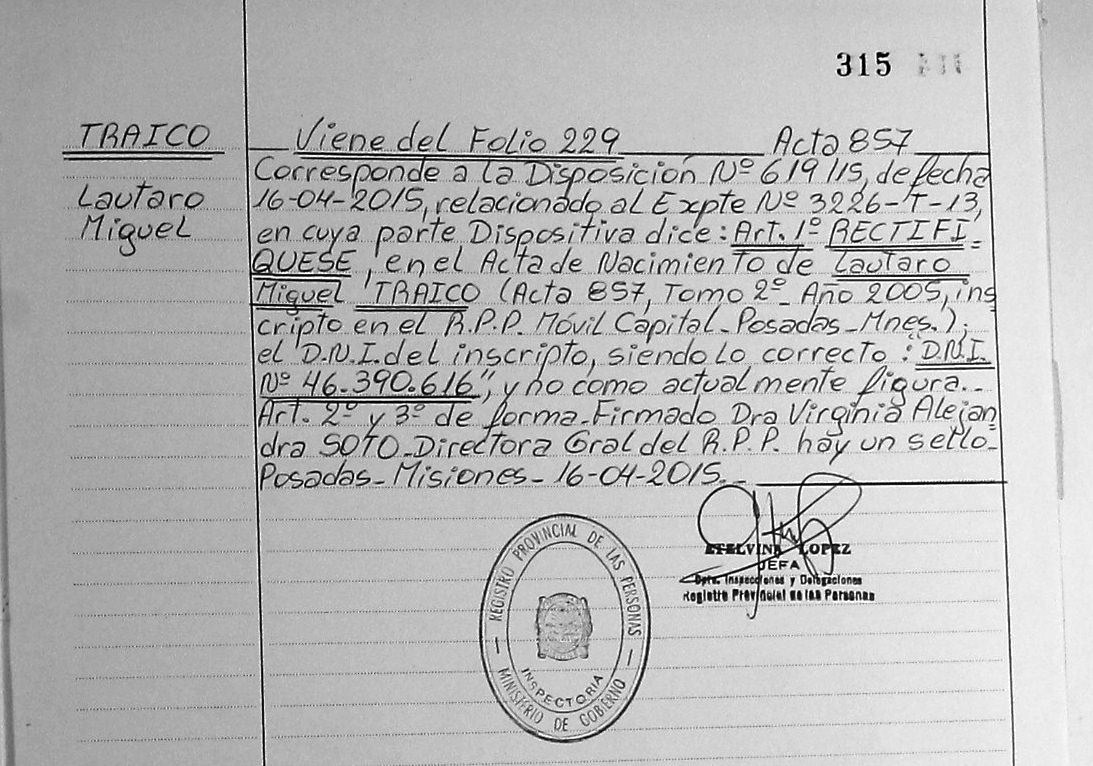 315
TRAICO
Lautaro
Miguel
Viene del Folio 229 Acta 857
Corresponde a la Disposición Nº 619/15, de fecha
16-04-2015, relacionado al Expte Nº 3226-T-13,
en cuya parte Dispositiva dice: Art. 1º RECTIFI-
QUESE, en el Acta de Nacimiento de Lautaro
Miguel TRAICO (Acta 857, Tomo 2º- Año 2005, ins
cripto en el R.P.P. Móvil Capital-Posadas-Mnes.);
el D.N.I. del inscripto, siendo lo correcto: "D.N.I.
Nº 46.390.616", y no como actualmente figura.-
Art. 2º y 3º de forma-Firmado Dra Virginia Alejan
dra SOTO-Directora Gral del R.P.P. hay un sello-
Posadas-Misiones-16-04-2015.-
ETELVINA LOPEZ
JEFA
Dpto. Inspecciones y Delegaciones
Registro Provincial de las Personas
REGISTRO PROVINCIAL DE LAS PERSONAS
INSPECTORIA
MINISTERIO DE GOBIERNO